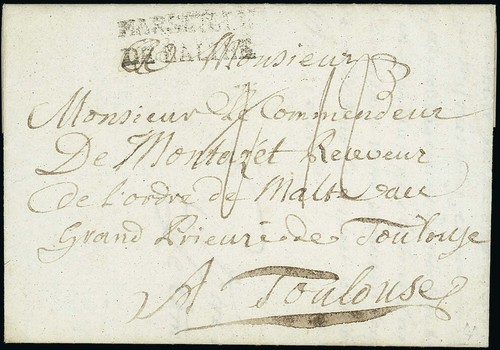 MARSEILLE
DE MALTHE
A Monsieur
Monsieur Le Commendeur
De Montazet Receveur
de l'ordre de Malte au
Grand Prieuré de Toulouse
A Toulouse